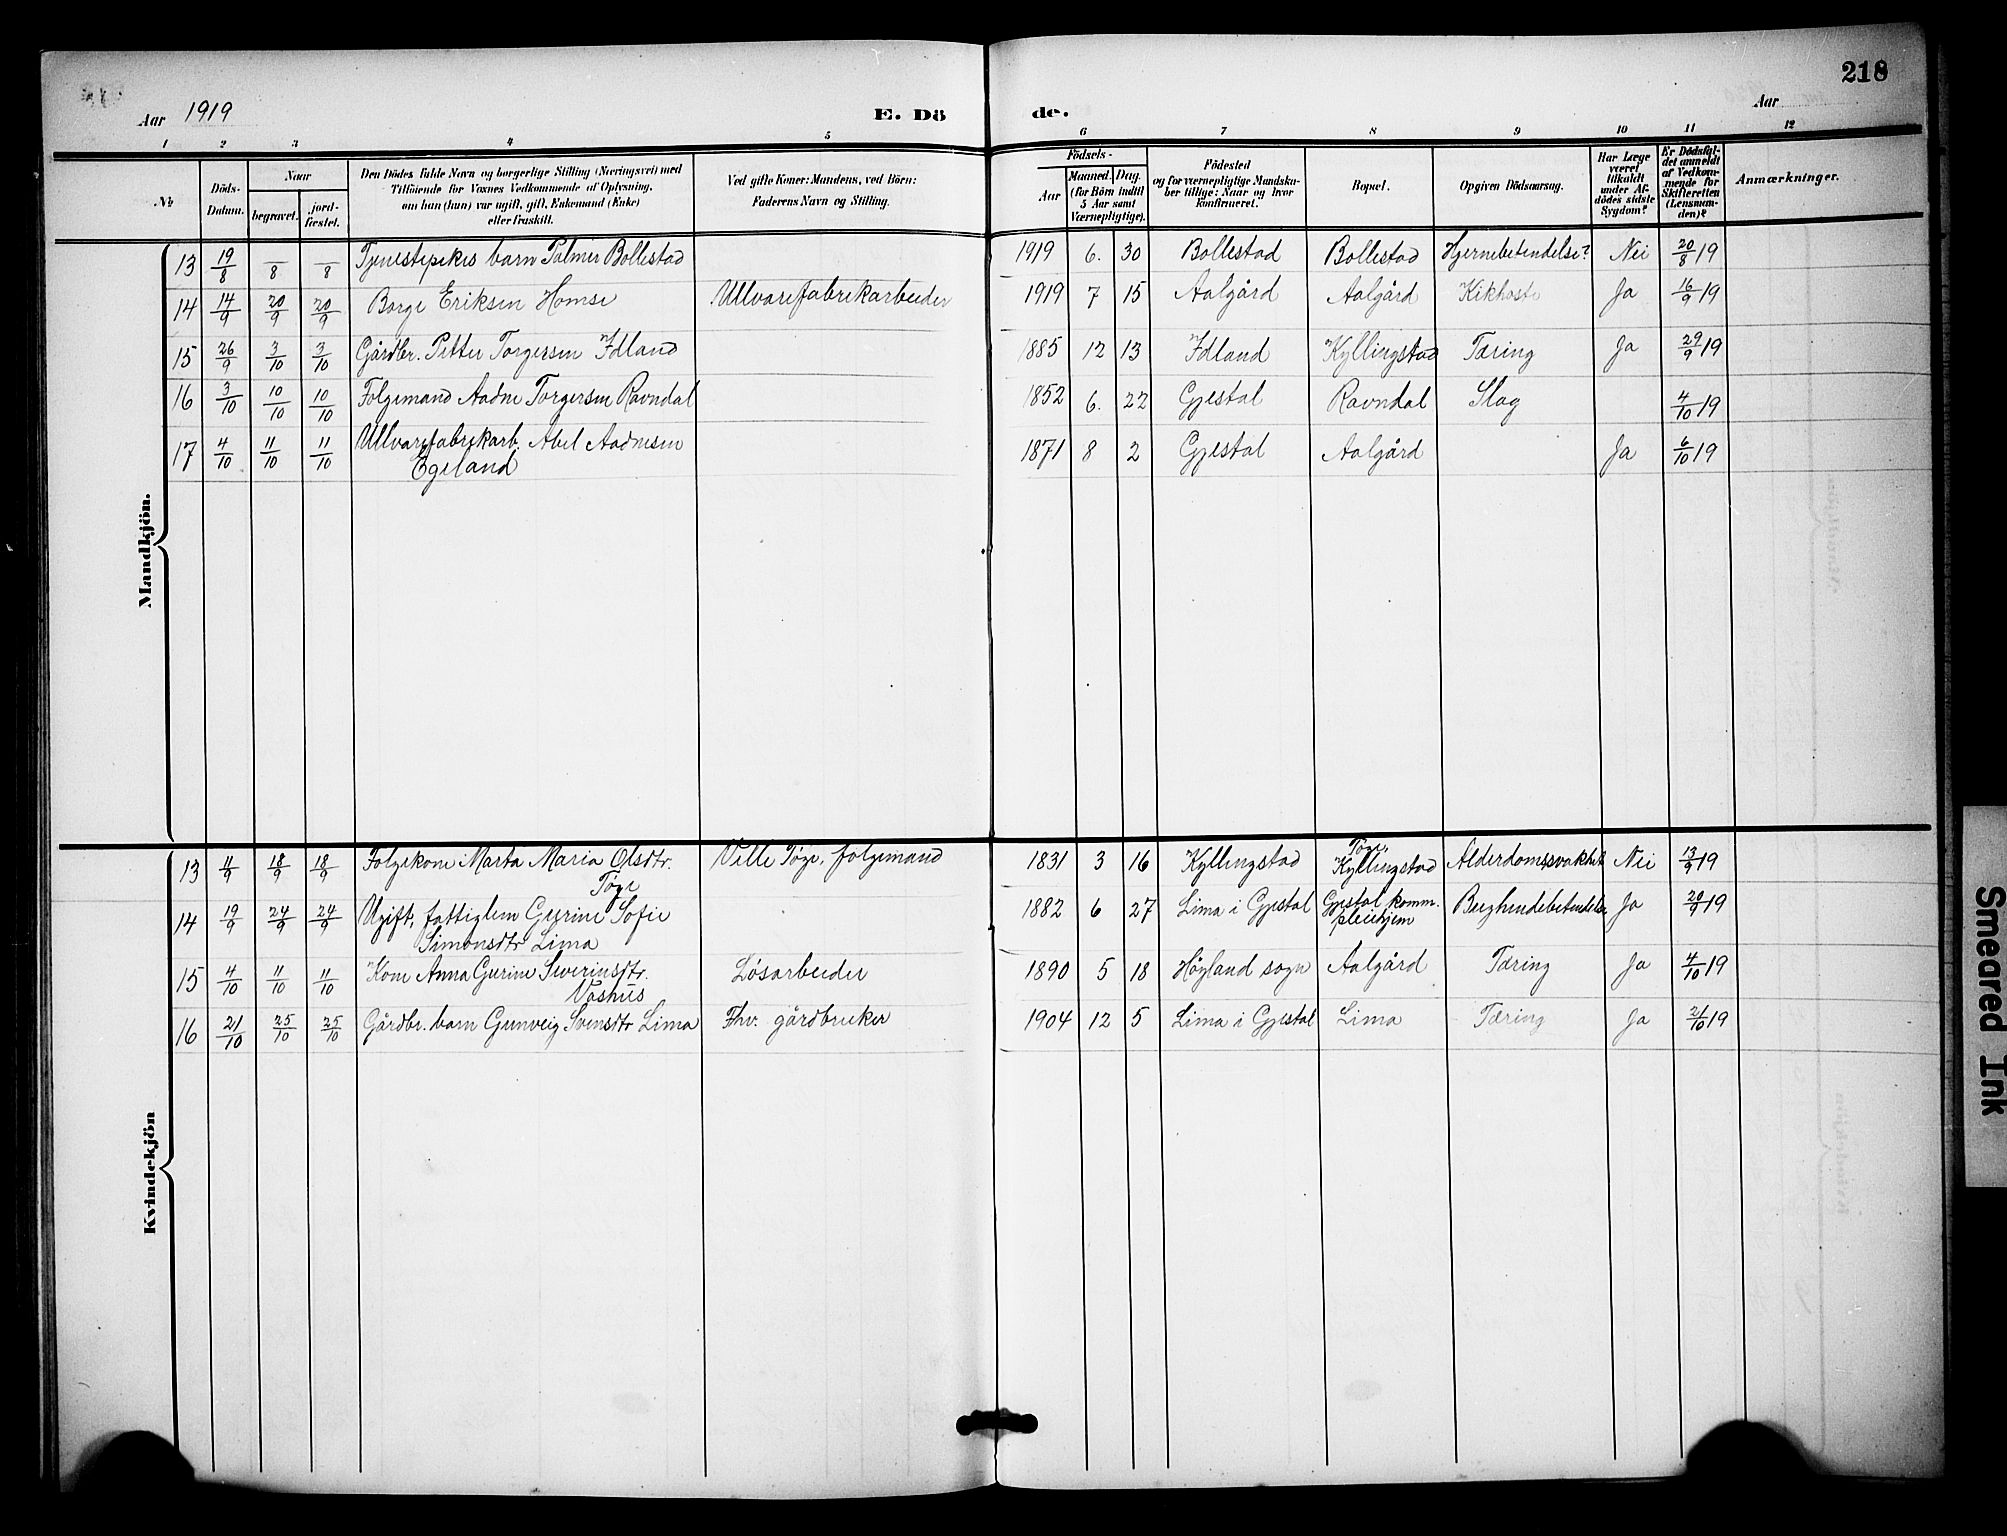 218
Aar 1919
E. Döde.
Aar
1 2 3 4 5 6 7 8 9 10 11 12
No
Döds-Datum.
Naar
begravet.
jordfæstet.
Den Dödes fulde Navn og borgerlige Stilling (Næringsvei) med
Tilföiende for Voxnes Vedkommende af Oplysning,
om han (hun) var ugift, gift, Enkemand (Enke)
eller fraskilt.
Ved gifte Koner: Mandens, ved Börn:
Faderens Navn og Stilling.
Födsels-
Aar
Maaned. Dag.
(for Börn indtil
5 Aar samt
Værnepligtige).
Födested
og for værnepligtige Mandska-
ber tillige: Naar og hvor
konfirmeret.
Bopæl.
Opgiven Dödsaarsag.
Har Læge
været
tilkaldt
under Af-
dödes sidste
Sygdom?
Er Dödsfal-
det anmeldt
af Vedkom-
mende for
Skifteretten
(Lensman-
den)?
Anmærkninger.
Mandkjön.
13 19/8 —/8 —/8 Tjenestepikes barn Palmer Bollestad 1919 6. 30 Bollestad Bollestad Hjernebetendelse? Nei 20/8 19
14 14/9 20/9 20/9 Borge Eriksen Homse Ullvarefabrikarbeider 1919 7 15 Aalgård Aalgård Kikhoste Ja 16/9 19
15 26/9 3/10 3/10 Gårdbr. Petter Torgersen Idland 1885 12 13 Idland Kyllingstad Tæring Ja 29/9 19
16 3/10 10/10 10/10 Folgemand Aadne Torgersen Ravndal 1852 6. 22 Gjestal Ravndal Slag 4/10 19
17 4/10 11/10 11/10 Ullvarefabrikarb. Abel Aadnesen 1871 8 2 Gjestal Aalgård Ja 6/10 19
Egeland
Kvindekjön
13 11/9 18/9 18/9 Folgekone Marta Maria Olsdtr. Ville Tøge, folgemand 1831 3 16 Kyllingstad Tøge, Kyllingstad Alderdomssvakhet Nei 13/9 19
Tøge
14 19/9 24/9 24/9 Ugift, fattiglem Gurine Sofie 1882 6 27 Lima i Gjestal Gjestal komm. pleiehjem Beinhindebetendelse Ja 20/9 19
Simonsdtr Lima
15 4/10 11/10 11/10 Kone Anna Gurine Severinsdtr. Løsarbeider 1890 5 18 Høyland sogn Aalgård Tæring Ja 4/10 19
Vashus
16 21/10 25/10 25/10 Gårdbr. barn Gunveig Svensdtr Lima Fhv. gårdbruker 1904 12 5 Lima i Gjestal Lima Tæring Ja 21/10 19
Smeared Ink